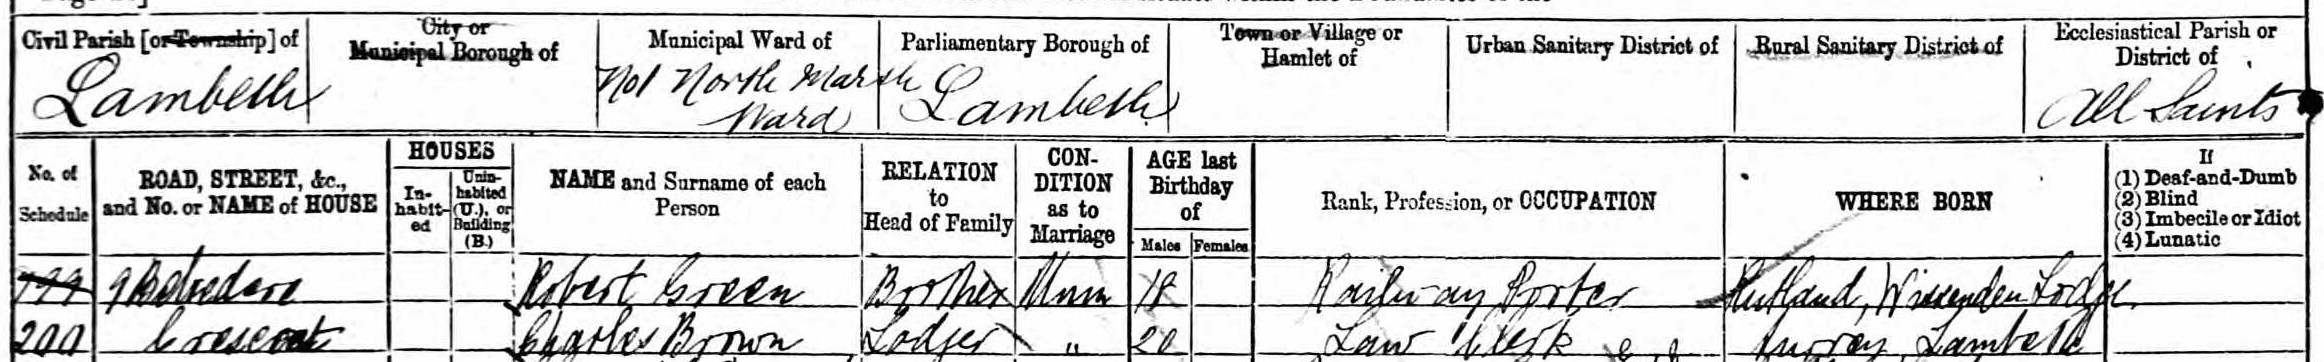 Civil Parish [or Township] of
Lambeth
City or
Municipal Borough of
Municipal Ward of
Not North Marsh
Ward
Parliamentary Borough of
Lambeth
Town or Village or
Hamlet of
Urban Sanitary District of
Rural Sanitary District of
Ecclesiastical Parish or
District of
All Saints
No. of
Schedule
ROAD, STREET, &c.,
and No. or NAME of HOUSE
HOUSES
In-
habit-
ed
Unin-
habited
(U.), or
Building
(B.)
NAME and Surname of each
Person
RELATION
to
Head of Family
CON-
DITION
as to
Marriage
AGE last
Birthday
of
Males Females
Rank, Profession, or OCCUPATION
WHERE BORN
If
(1) Deaf-and-Dumb
(2) Blind
(3) Imbecile or Idiot
(4) Lunatic
199 9 Belvedere Robert Green Brother Unm 18 Railway Porter Rutland, Lodge
200 Crescent Charles Brown Lodger " 20 Law Clerk Surrey, Lambeth